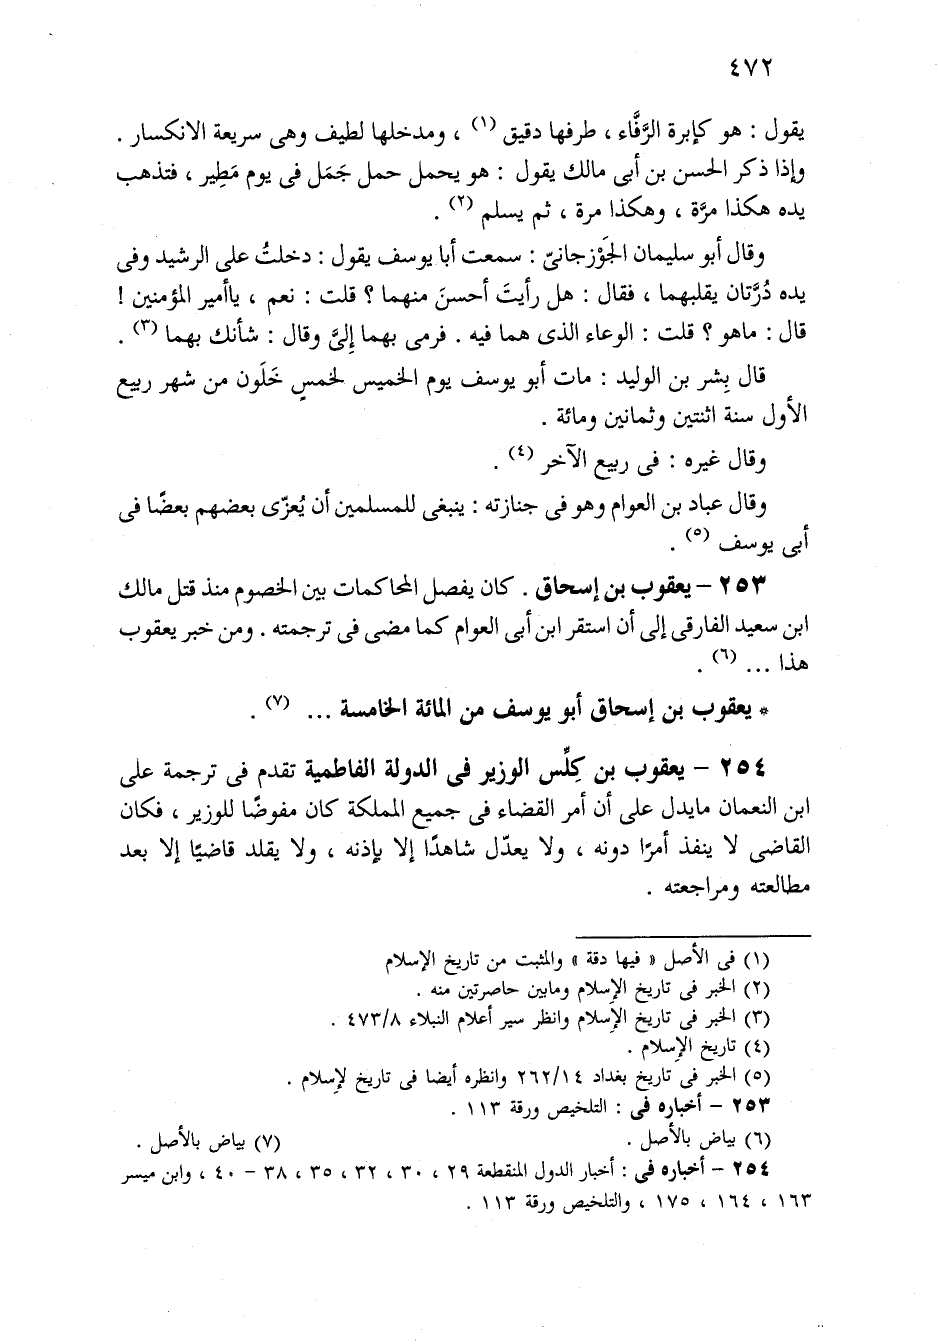 ٤٧٢
يقول : هو كإبرة الرَّفَّاء ، طرفها دقيق (١) ، ومدخلها لطيف وهى سريعة الانكسار .
وإذا ذكر الحسن بن أبى مالك يقول : هو يحمل حمل جَمَل فى يوم مَطِير ، فتذهب
يده هكذا مرَّة ، وهكذا مرة ، ثم يسلم (٢) .
وقال أبو سليمان الجَوْزجانىّ : سمعت أبا يوسف يقول : دخلتُ على الرشيد وفى
يده دُرَّتان يقلبهما ، فقال : هل رأيتَ أحسنَ منهما ؟ قلت : نعم ، ياأمير المؤمنين !
قال : ماهو ؟ قلت : الوعاء الذى هما فيه . فرمى بهما إِلىَّ وقال : شأنك بهما (٣) .
قال بِشر بن الوليد : مات أبو يوسف يوم الخميس لخمسٍ خَلَون من شهر ربيع
الأول سنة اثنتين وثمانين ومائة .
وقال غيره : فى ربيع الآخر (٤) .
وقال عباد بن العوام وهو فى جنازته : ينبغى للمسلمين أن يُعزّى بعضهم بعضًا فى
أبى يوسف (٥) .
٢٥٣ – يعقوب بن إسحاق . كان يفصل المحاكمات بين الخصوم منذ قتل مالك
ابن سعيد الفارقى إلى أن استقر ابن أبى العوام كما مضى فى ترجمته . ومن خبر يعقوب
هذا ... (٦) .
* يعقوب بن إسحاق أبو يوسف من المائة الخامسة ... (٧) .
٢٥٤ – يعقوب بن كِلِّس الوزير فى الدولة الفاطمية تقدم فى ترجمة على
ابن النعمان مايدل على أن أمر القضاء فى جميع المملكة كان مفوضًا للوزير ، فكان
القاضى لا ينفذ أمرًا دونه ، ولا يعدّل شاهدًا إلا بإذنه ، ولا يقلد قاضيًا إلا بعد
مطالعته ومراجعته .
(١) فى الأصل « فيها دقة » والمثبت من تاريخ الإسلام
(٢) الخبر فى تاريخ الإسلام ومابين حاصرتين منه .
(٣) الخبر فى تاريخ الإسلام وانظر سير أعلام النبلاء ٤٧٣/٨ .
(٤) تاريخ الإسلام .
(٥) الخبر فى تاريخ بغداد ٢٦٢/١٤ وانظره أيضا فى تاريخ لإسلام .
٢٥٣ – أخباره فى : التلخيص ورقة ١١٣ .
(٦) بياض بالأصل . (٧) بياض بالأصل .
٢٥٤ – أخباره فى : أخبار الدول المنقطعة ٢٩ ، ٣٠ ، ٣٢ ، ٣٥ ، ٣٨ – ٤٠ ، وابن ميسر
١٦٣ ، ١٦٤ ، ١٧٥ ، والتلخيص ورقة ١١٣ .